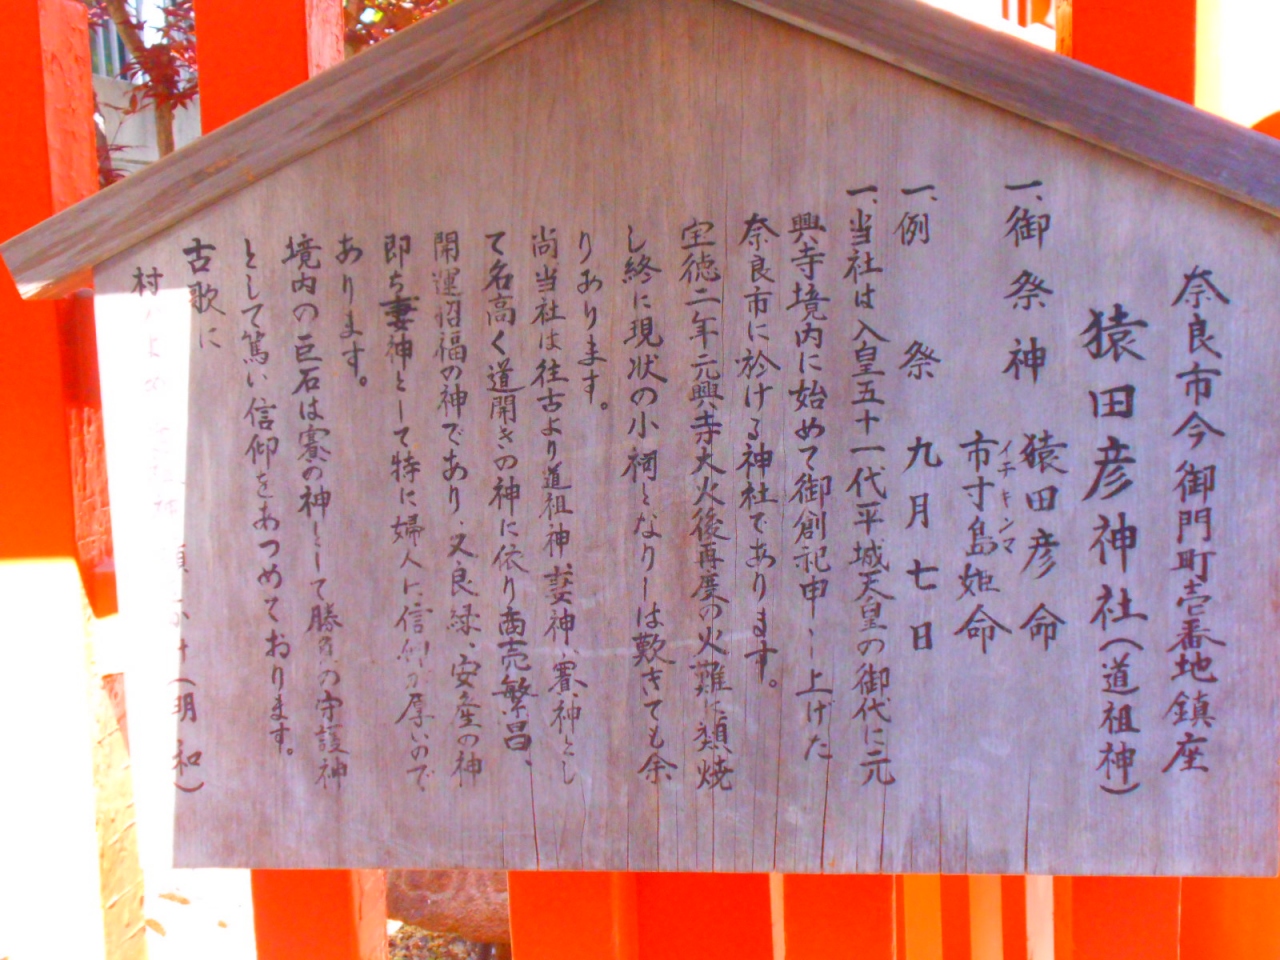 奈良市今御門町壱番地鎮座
猿田彦神社(道祖神)
一、御祭神 猿田彦命
イチキシマ
市寸島姫命
一、例祭 九月七日
一、当社は入皇五十一代平城天皇の御代に元
興寺境内に始めて御創祀申し上げた
奈良市に於ける神社であります。
宝徳二年元興寺大火後再度の火難に類焼
し終に現状の小祠となりしは歎きても余
りあります。
尚当社は往古より道祖神、妻神、賽神とし
て名高く道開きの神に依り商売繁昌、
開運招福の神であり、又良縁、安産の神
即ち妻神として特に婦人に信仰が厚いので
あります。
境内の巨石は賽の神として勝負の守護神
として篤い信仰をあつめております。
古歌に
村 (明和)